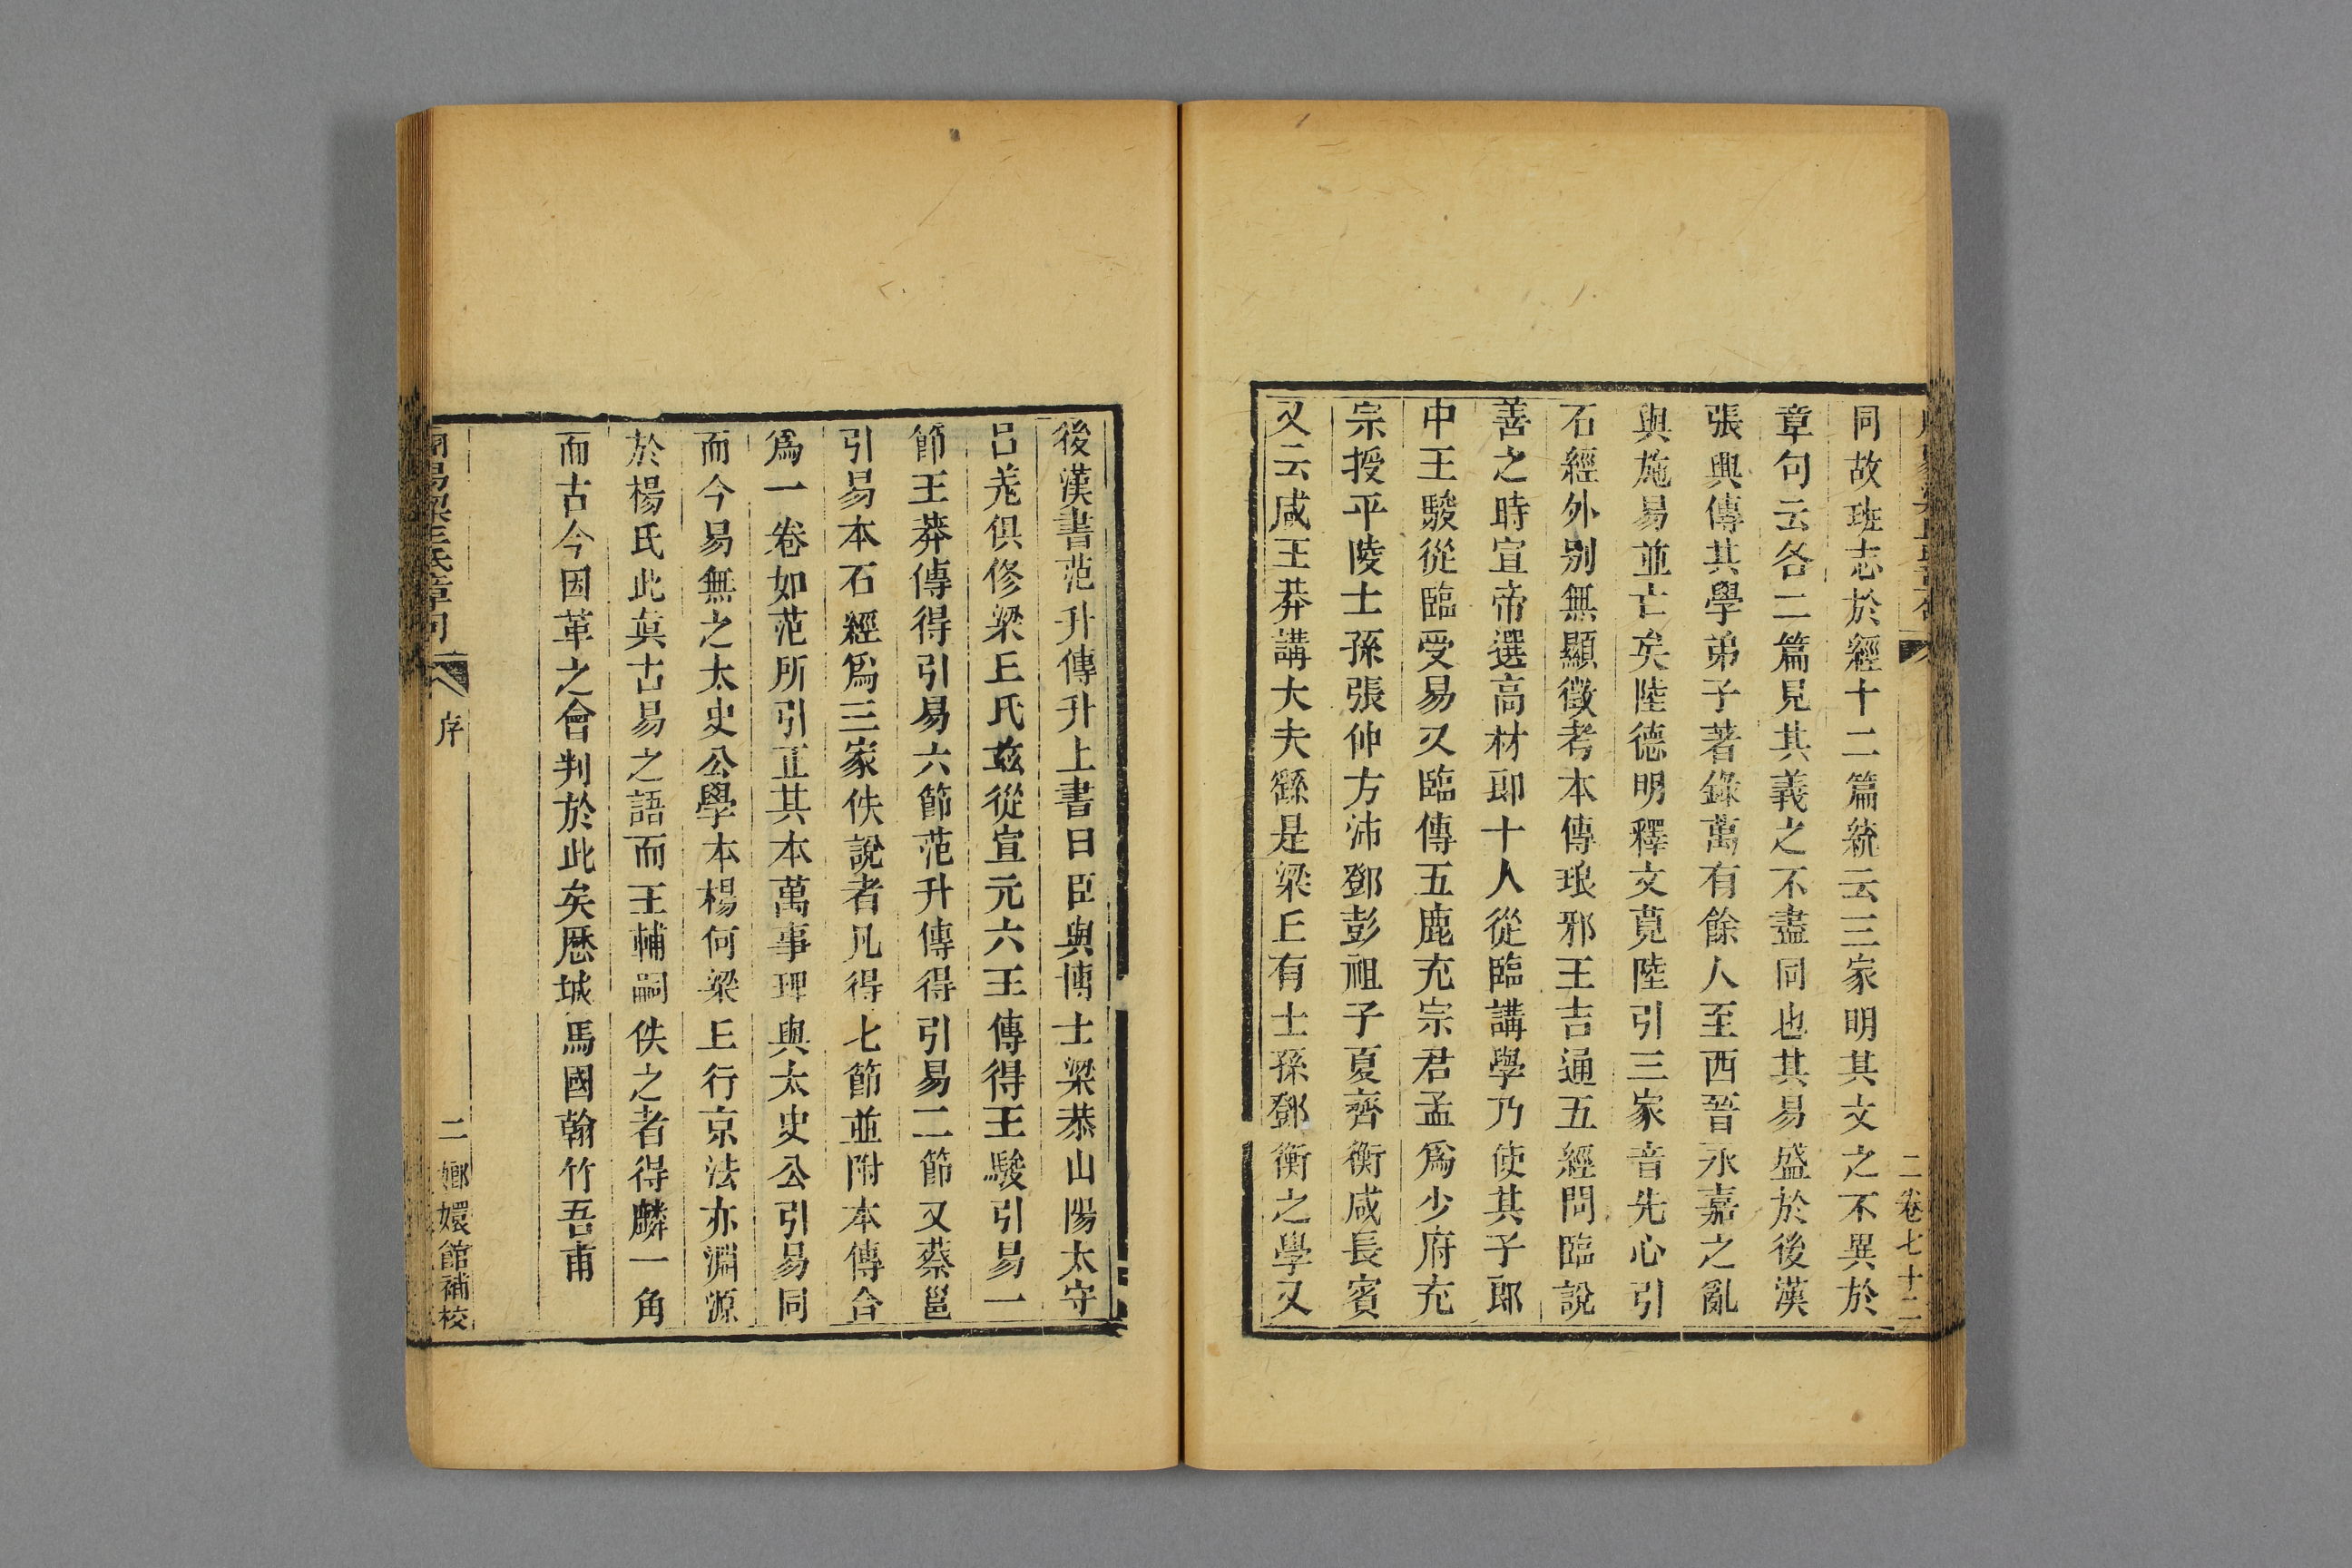 二卷七十二
同故班志於經十二篇統云三家明其文之不異於
章句云各二篇見其義之不盡同也其易盛於後漢
張興傳其學弟子著錄萬有餘人至西晉永嘉之亂
與施易並亡矣陸德明釋文莧陸引三家音先心引
石經外别無顯徵考本傳琅邪王吉通五經問臨說
善之時宣帝選高材郎十人從臨講學乃使其子郎
中王駿從臨受易又臨傳五鹿充宗君孟爲少府充
宗授平陵士孫張仲方沛鄧彭祖子夏齊衡咸長賓
又云咸王莽講大夫繇是梁𠀉有士孫鄧衡之學又
後漢書范升傳升上書曰臣與博士梁恭山陽太守
吕羌俱修梁𠀉氏兹從宣元六王傳得王駿引易一
節王莽傳得引易六節范升傳得引易二節又蔡邕
引易本石經爲三家佚說者凡得七節並附本傳合
爲一卷如范所引正其本萬事理與太史公引易同
而今易無之太史公學本楊何梁𠀉行京法亦淵源
於楊氏此眞古易之語而王輔嗣佚之者得麟一角
而古今因革之會判於此矣厯城馬國翰竹吾甫
周易梁𠀉氏章句 序 二 嫏嬛館補校